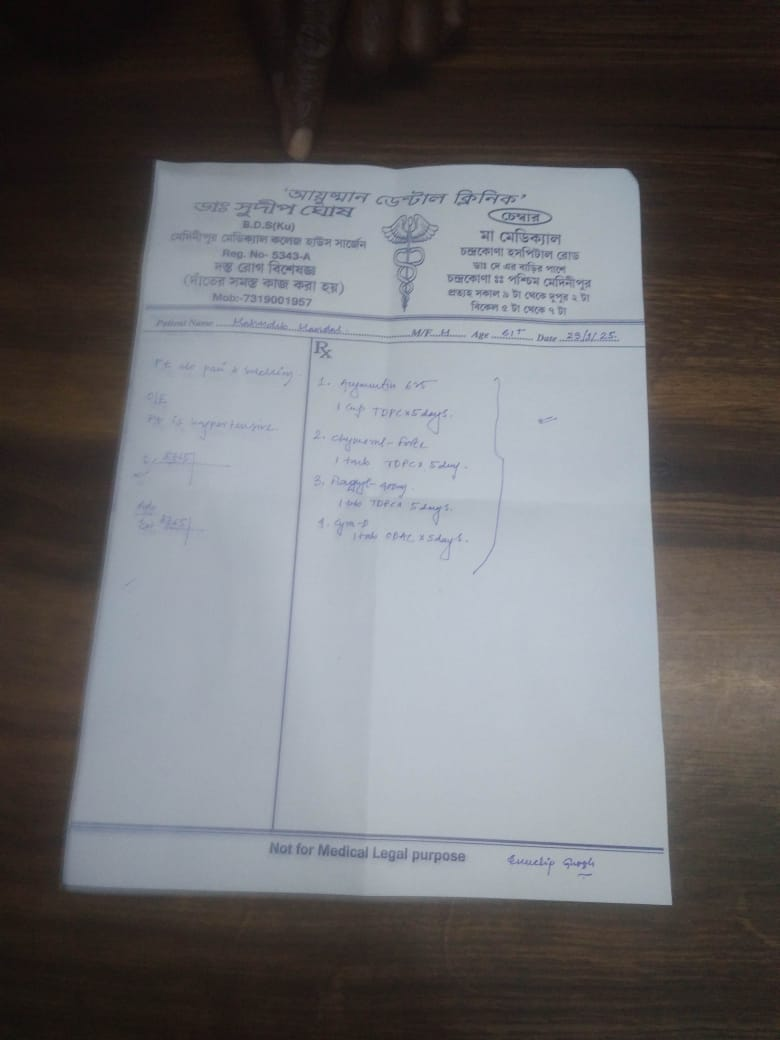 'আয়ুষ্মান ডেন্টাল ক্লিনিক'
ডাঃ সুদীপ ঘোষ
B.D.S(Ku)
মেদিনীপুর মেডিক্যাল কলেজ হাউস সার্জেন
Reg. No- 5343-A
দন্ত রোগ বিশেষজ্ঞ
(দাঁতের সমস্ত কাজ করা হয়)
Mob:-7319001957
চেম্বার
মা মেডিক্যাল
চন্দ্রকোণা হসপিটাল রোড
ডাঃ দে এর বাড়ির পাশে
চন্দ্রকোণা ঃঃ পশ্চিম মেদিনীপুর
প্রত্যহ সকাল ৯ টা থেকে দুপুর ২ টা
বিকেল ৫ টা থেকে ৭ টা
Patient Name M/F M Age Date 29/1/25
pain & swelling
O/E
Pt is hypertensive
Adv
Rx
1. 625
1 cap TDPC x 5 days.
2. Chymoral-Forte
1 tab TDPC x 5 day.
3. Flagyl-400mg.
1 tab TDPC x 5 days.
4.
1 tab ODAC x 5 days.
Not for Medical Legal purpose